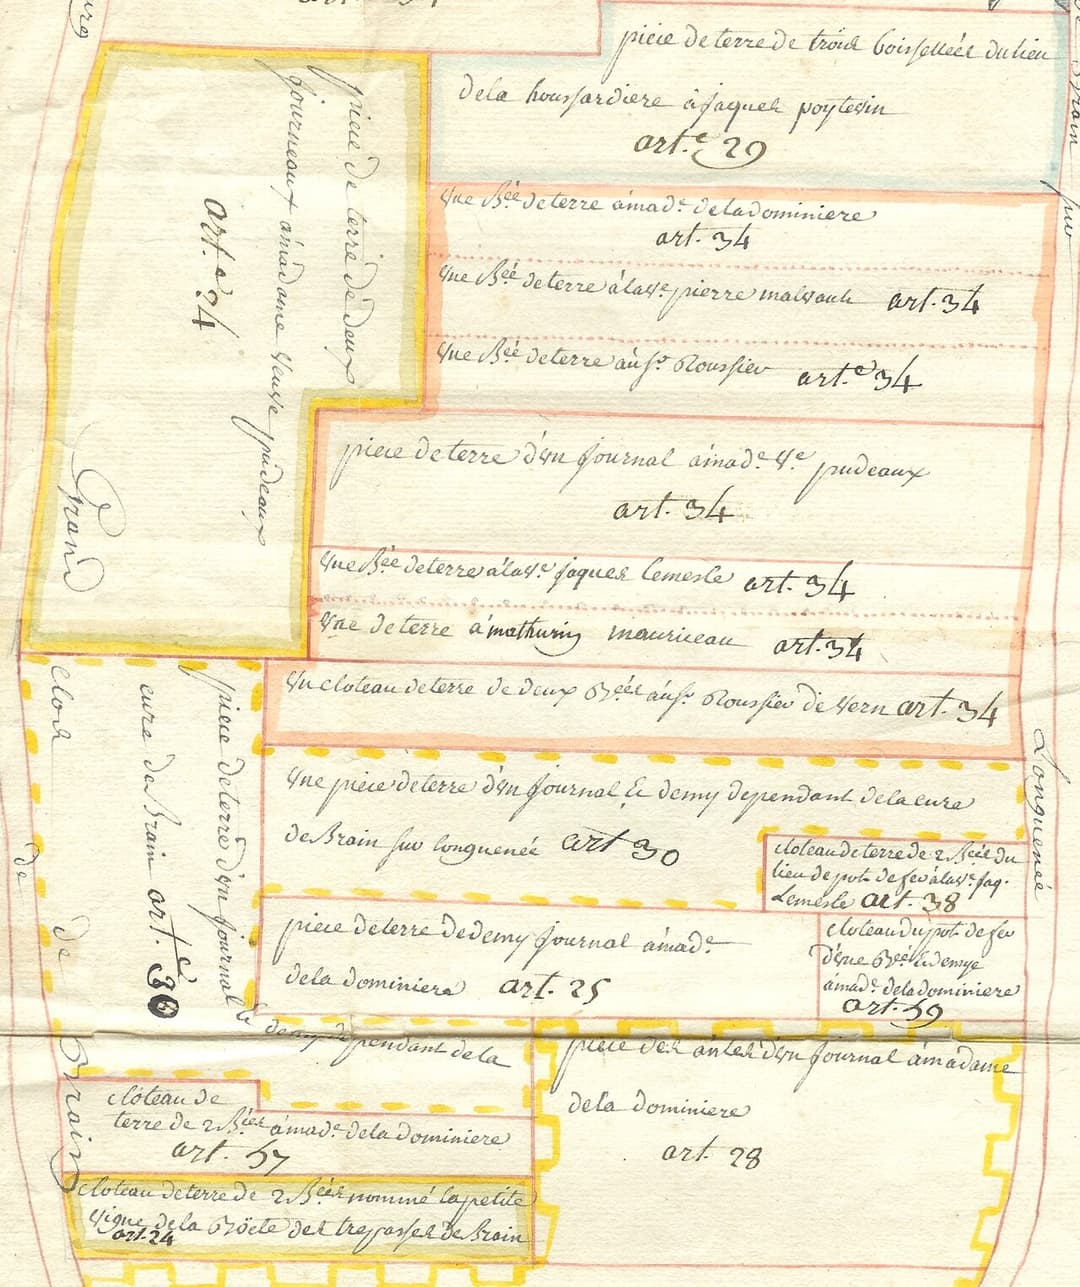 pièce de terre de trois boissellées du lieu
de la houssardiere à jaques poytevin
art.e 29
pièce de terre de deux
journeaux à madame veuve pudeaux
art.e 24
Une B.ée de terre à mad.e de la dominiere
art. 34
Une B.ée de terre à la v.e pierre malvault art. 34
Une B.ée de terre au s.r Roussier art.e 34
pièce de terre d'un journal à mad.e v.e pudeaux
art. 34
Une B.ée de terre à la v.e jaques lemesle art. 34
Une de terre a mathurin mauriceau art. 34
Un cloteau de terre de deux B.ées au s.r Roussier de vern art. 34
Une pièce de terre d'un journal & demy dependant de la cure
de Brain sur longuenée art 30
cloteau de terre de 2 B.ées du
lieu de pot de fer à la v.e jaq.
Lemesle art. 38
pièce de terre de demy journal à mad.e
de la dominiere art. 25
cloteau du pot de fer
d'une B.ée & demye
à mad.e de la dominiere
art. 59
pièce de terre d'un journal
& demy dependant de la
cure de Brain art.e 30
pièce des antes d'un journal à madame
de la dominiere
art. 28
cloteau de
terre de 2 B.ées à mad.e de la dominiere
art. 57
cloteau de terre de 2 B.ées nommé la petite
vigne de la Böete des trepassés de Brain
art. 24
Grand
clos
de
de
Brain
Brain
sur
Longuenée